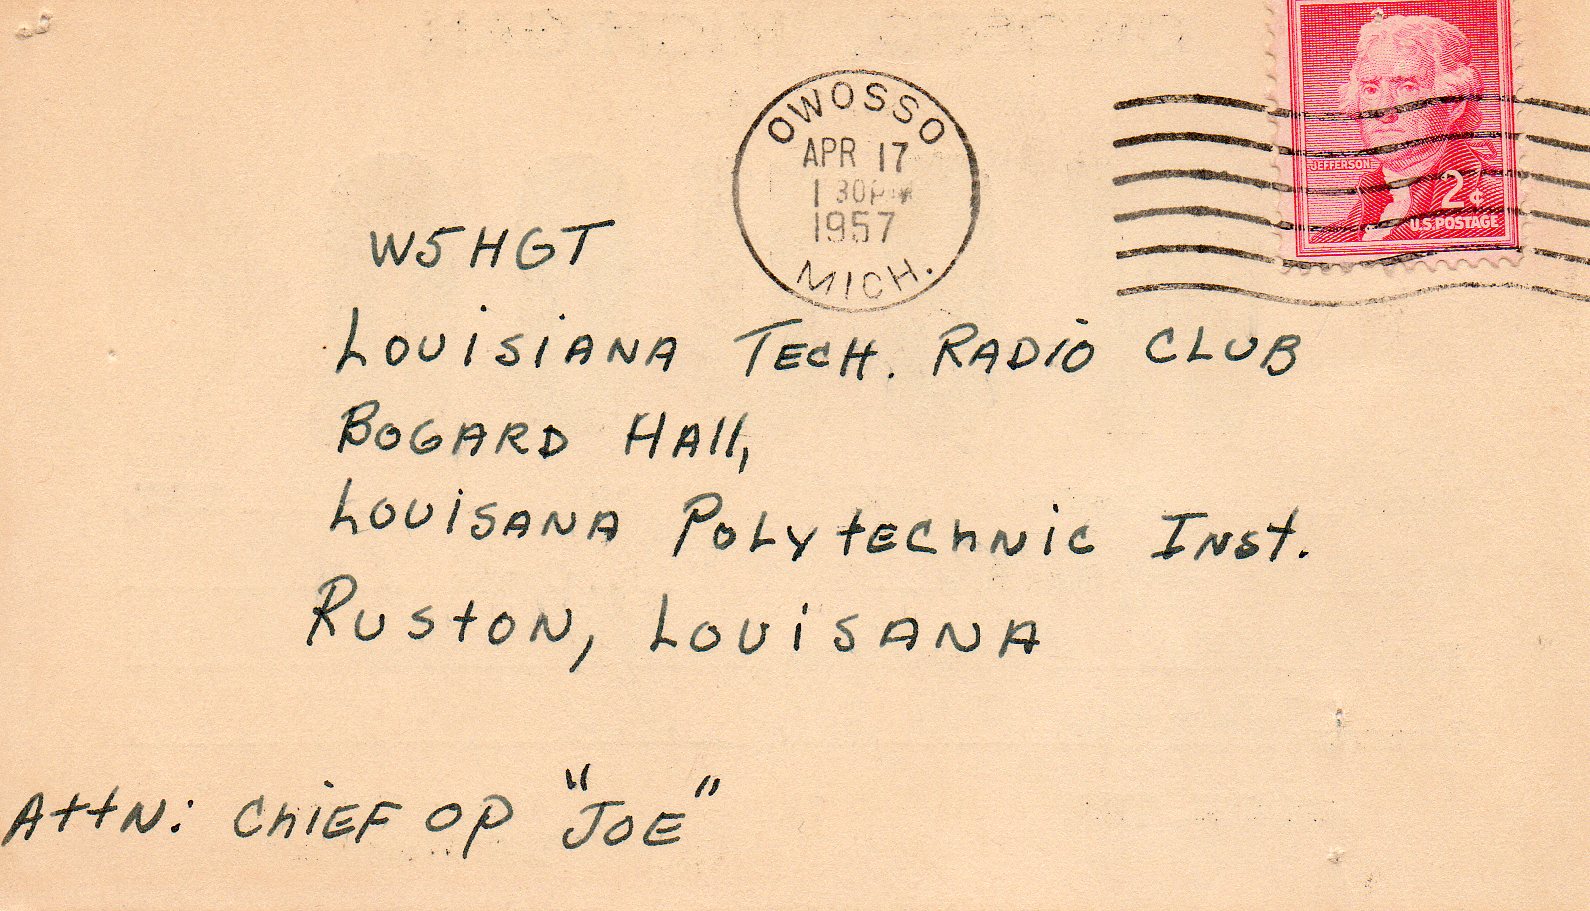 OWOSSO
APR 17
1 30 PM
1957
MICH.
JEFFERSON
2¢
U.S. POSTAGE
W5HGT
LOUISIANA TECH. RADIO CLUB
BOGARD HAll,
LOUISANA POLYtEChNIC INst.
RUStON, LOUISANA
AttN: ChIEF OP "JOE"